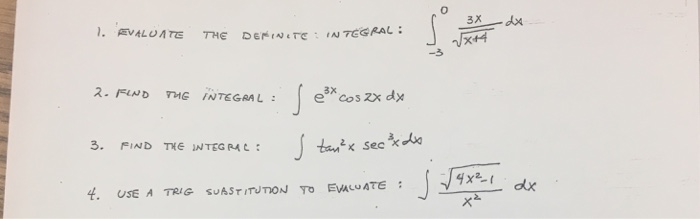 1. EVALUATE THE DEFINITE : INTEGRAL : ∫₋₃⁰ 3x/√(x+4) dx
2. FIND THE INTEGRAL : ∫ e³ˣ cos 2x dx
3. FIND THE INTEGRAL : ∫ tan²x sec³x dx
4. USE A TRIG SUBSTITUTION TO EVALUATE : ∫ √(4x²-1)/x² dx